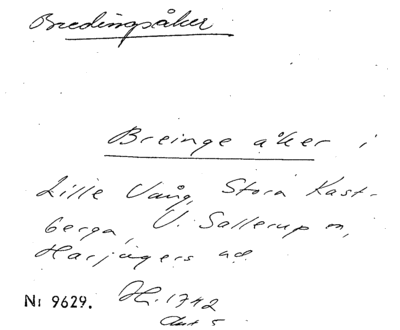 Bredingsåker
Breinge åker i
Lille Vång, Stora Kast-
berga, V. Sallerup sn,
Harjagers hd
N: 9629. Hi. 1742
Akt 5